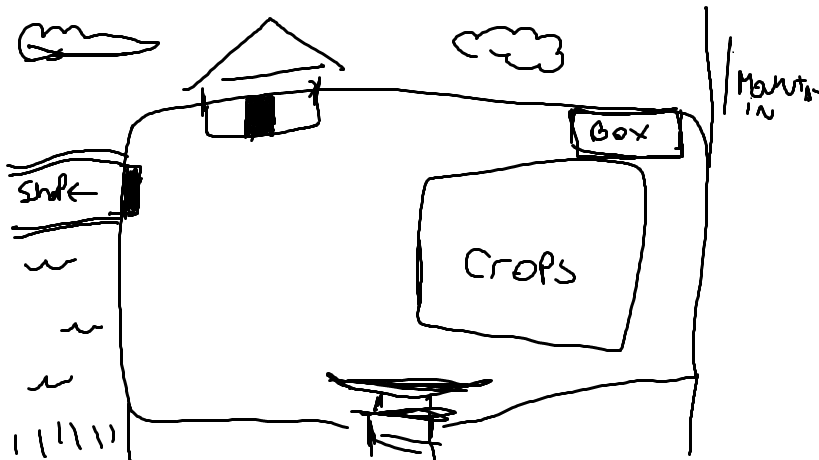 Mount
IN
Box
Shop ←
Crops